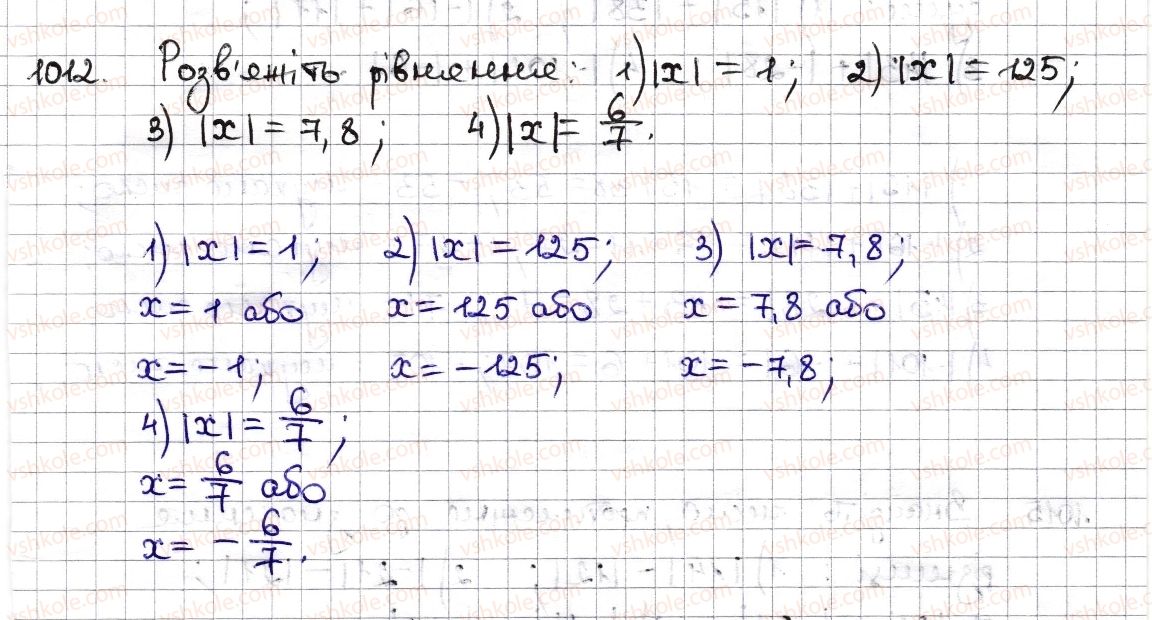 1012. Розв'яжіть рівняння: 1) |x| = 1; 2) |x| = 125;
3) |x| = 7,8; 4) |x| = 6/7.
1) |x| = 1; 2) |x| = 125; 3) |x| = 7,8;
x = 1 або x = 125 або x = 7,8 або
x = -1; x = -125; x = -7,8;
4) |x| = 6/7;
x = 6/7 або
x = - 6/7.